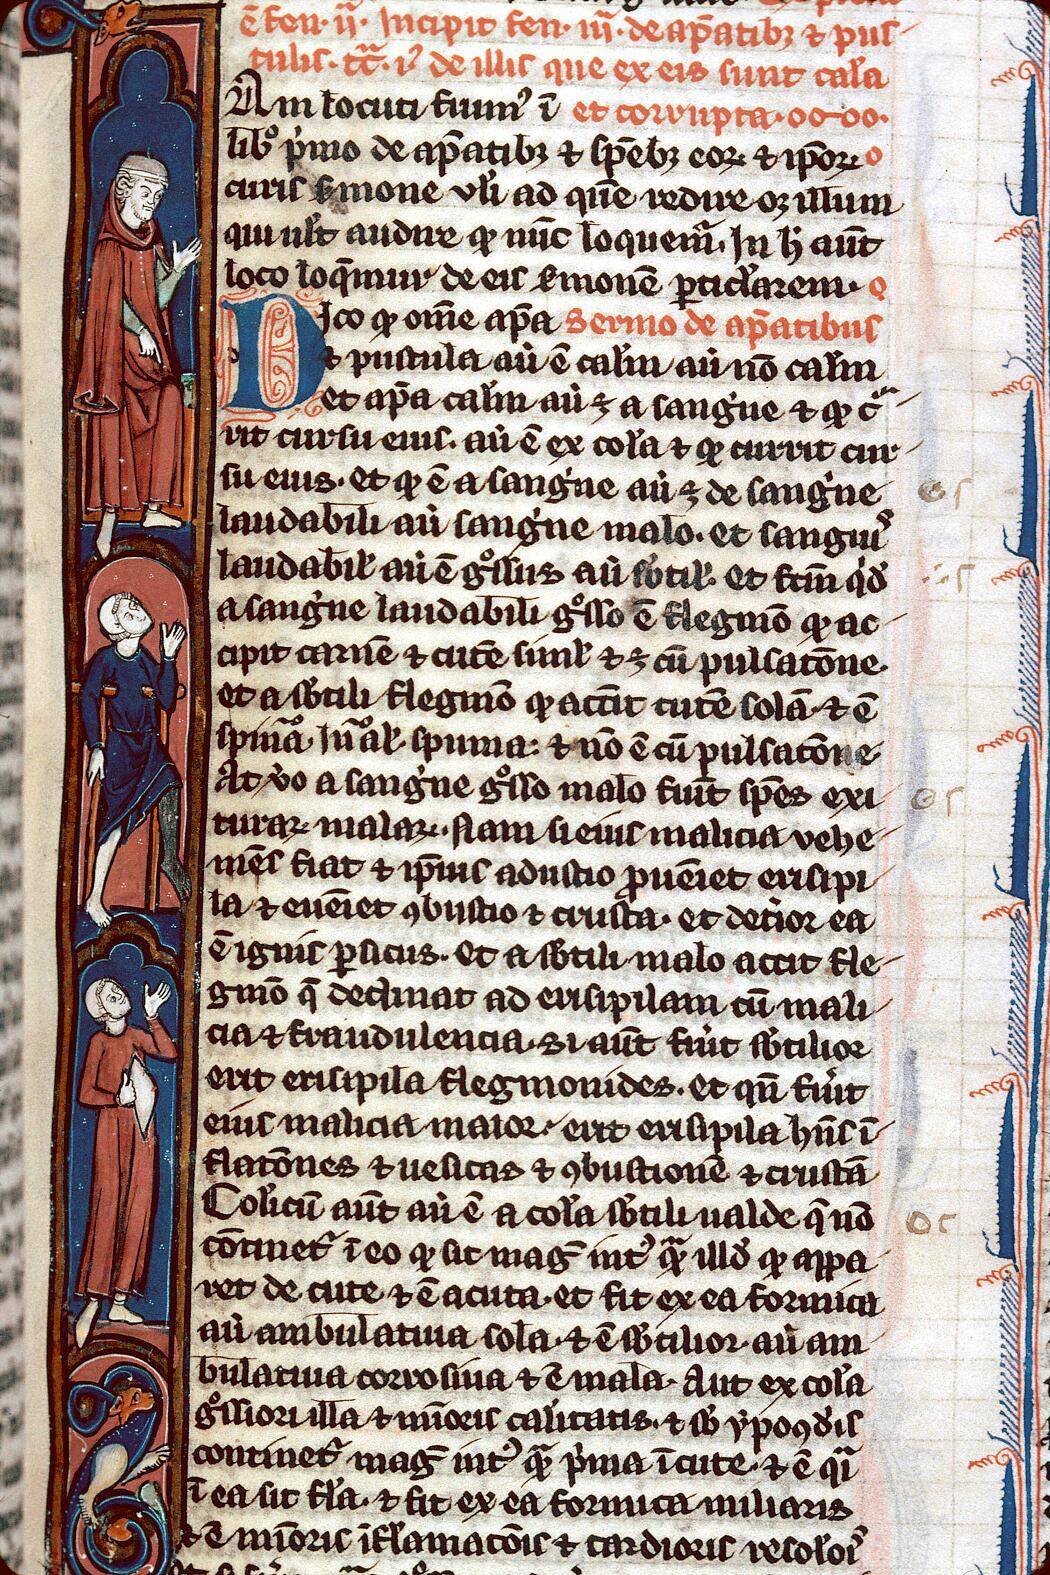 e fen. ij. Incipit fen. iij. de ap̃atibꝫ ⁊ pus
tulis. tc̃a. i. de illis que ex eis sunt cala
Am locuti fuim᷒ ĩ et corrupta.
lib̊ p̃mo de ap̃atibꝫ ⁊ sp̃ebꝫ eoꝝ ⁊ ip̃oꝝ
curis s̃mone vl̃i ad quẽ redire oꝫ illum
qui ult audire qͥ nũc loquem̃. In h̃ aũt
loco loq̃mur de eis s̃monẽ ꝑticl̃arem.
Dico qͥ om̃e ap̃a Sermo de ap̃atibus
⁊ pustula aũ ẽ cal̃m aũ nõ cal̃m
et ap̃a cal̃m aũ ꝫ a sang̃ne ⁊ qͥ cᷓ
rit cursu eius. aũ ẽ ex col̃a ⁊ qͥ currit cur
su eius. et qͥ ẽ a sang̃ne aũ ꝫ de sang̃ne
laudabili aũ sang̃ne malo. et sanguĩs
laudabil̃ aũ ẽ gͦssus aũ sb̃til̃. et fc̃m qͥd̃
a sang̃ne laudabili gͦsso ẽ flegmõ qͥ ac
cipit carnẽ ⁊ cutẽ simĩl ⁊ ꝫ cũ pulsatõne.
et a sb̃tili flegmõ qͥ accĩt cutẽ solã ⁊ ẽ
spinͦa ⁊ nõ ẽ cũ pulsatõne
At v̊o a sang̃ne gͦsso malo fiũt sp̃es exi
turaꝝ malaꝝ. Nam si eius malicia vehe
mẽs fiat ⁊ ip̃ius adustio ꝓueniet erisipi
la ⁊ eueniet ꝯbustio ⁊ crusta. et det̃ior ea
ẽ ignis ꝑsicus. et a sb̃tili malo accĩt fle
gmõ q̃ declinat ad erisipilam cũ mali
cia ⁊ fraudulencia. Si aũt fũit sb̃tilior
erit erisipila flegmonides. et qñ fũit
eius malicia maior. erit erisipila hñs ĩ
flatõnes ⁊ uesicas ⁊ ꝯbustionẽ ⁊ crustã
Col̃icũ aũt aũ ẽ a col̃a sb̃tili ualde q̃ nõ
cõtinet᷑ ĩ eo qͥ sit mag̃ int᷒ qᷓ illd̃ qͥ appa
ret de cute ⁊ ẽ acuta. et fit ex ea formica
aũ ambulatiua sola. ⁊ ẽ sb̃tilior. aũ am
bulatiua corrosiua ⁊ ẽ mala. Aut ex col̃a
gͦssiori illa ⁊ mĩoris caliditatis. ⁊ sb̃ ypoꝯdis
continet᷑ mag̃ int᷒ qᷓ p̃ma ĩ cute. ⁊ ẽ qĩ
ĩ ea sit fl̃a. ⁊ fit ex ea formica miliaris
⁊ ẽ mĩoris ĩflamacõis ⁊ tardioris resolõis